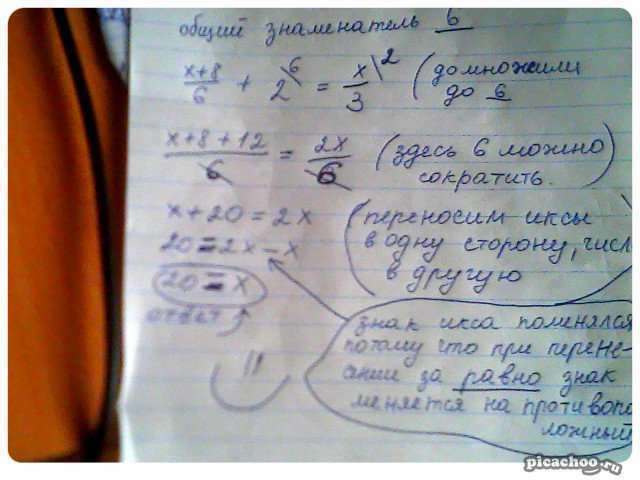 общий знаменатель 6
x+8/6 + 2 6 = x/3 2 (домножили
до 6
x+8+12/6 = 2x/6 (здесь 6 можно)
сократить.
x+20=2x (переносим иксы
20=2x-x в одну сторону, числ
20=x в другую
ответ
знак икса поменялся
потому что при перене-
сении за равно знак
меняется на противопо
ложный
picachoo.ru